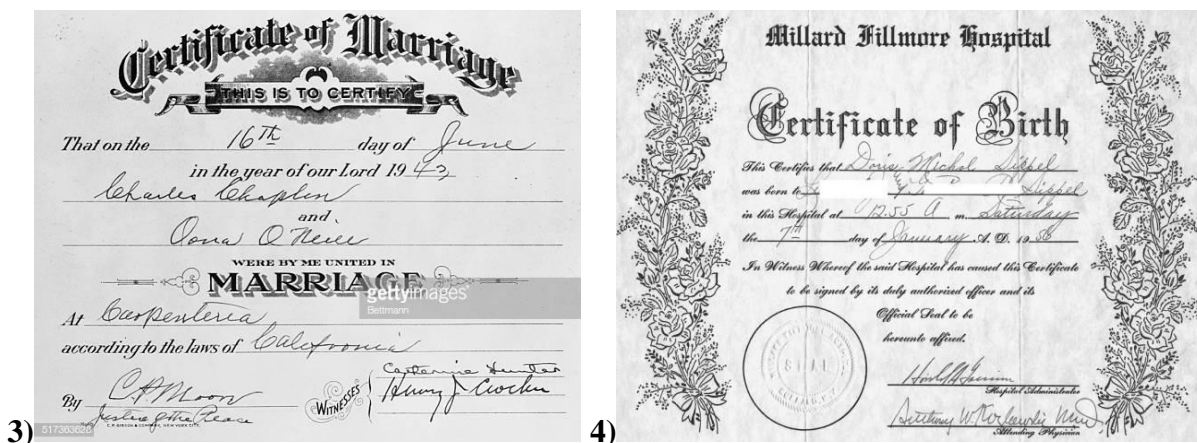 Certificate of Marriage
THIS IS TO CERTIFY
That on the 16th day of June
in the year of our Lord 1943,
Charles Chaplin
and
Oona O'Neill
WERE BY ME UNITED IN
MARRIAGE
gettyimages
Bettmann
At Carpenteria
according to the laws of California
By C.P. Moon
Justice of the Peace
WITNESSES
Catherine Hunter
Henry J Crocker
C. R. GIBSON & COMPANY, NEW YORK CITY.
3)
517363628
Millard Fillmore Hospital
Certificate of Birth
This Certifies that Sippel
was born to Sippel
in this Hospital at 12.55 A m. Saturday
the 7th day of January A. D. 1956
In Witness Whereof the said Hospital has caused this Certificate
to be signed by its duly authorized officer and its
Official Seal to be
hereunto affixed.
Hospital Administrator
Attending Physician
4)